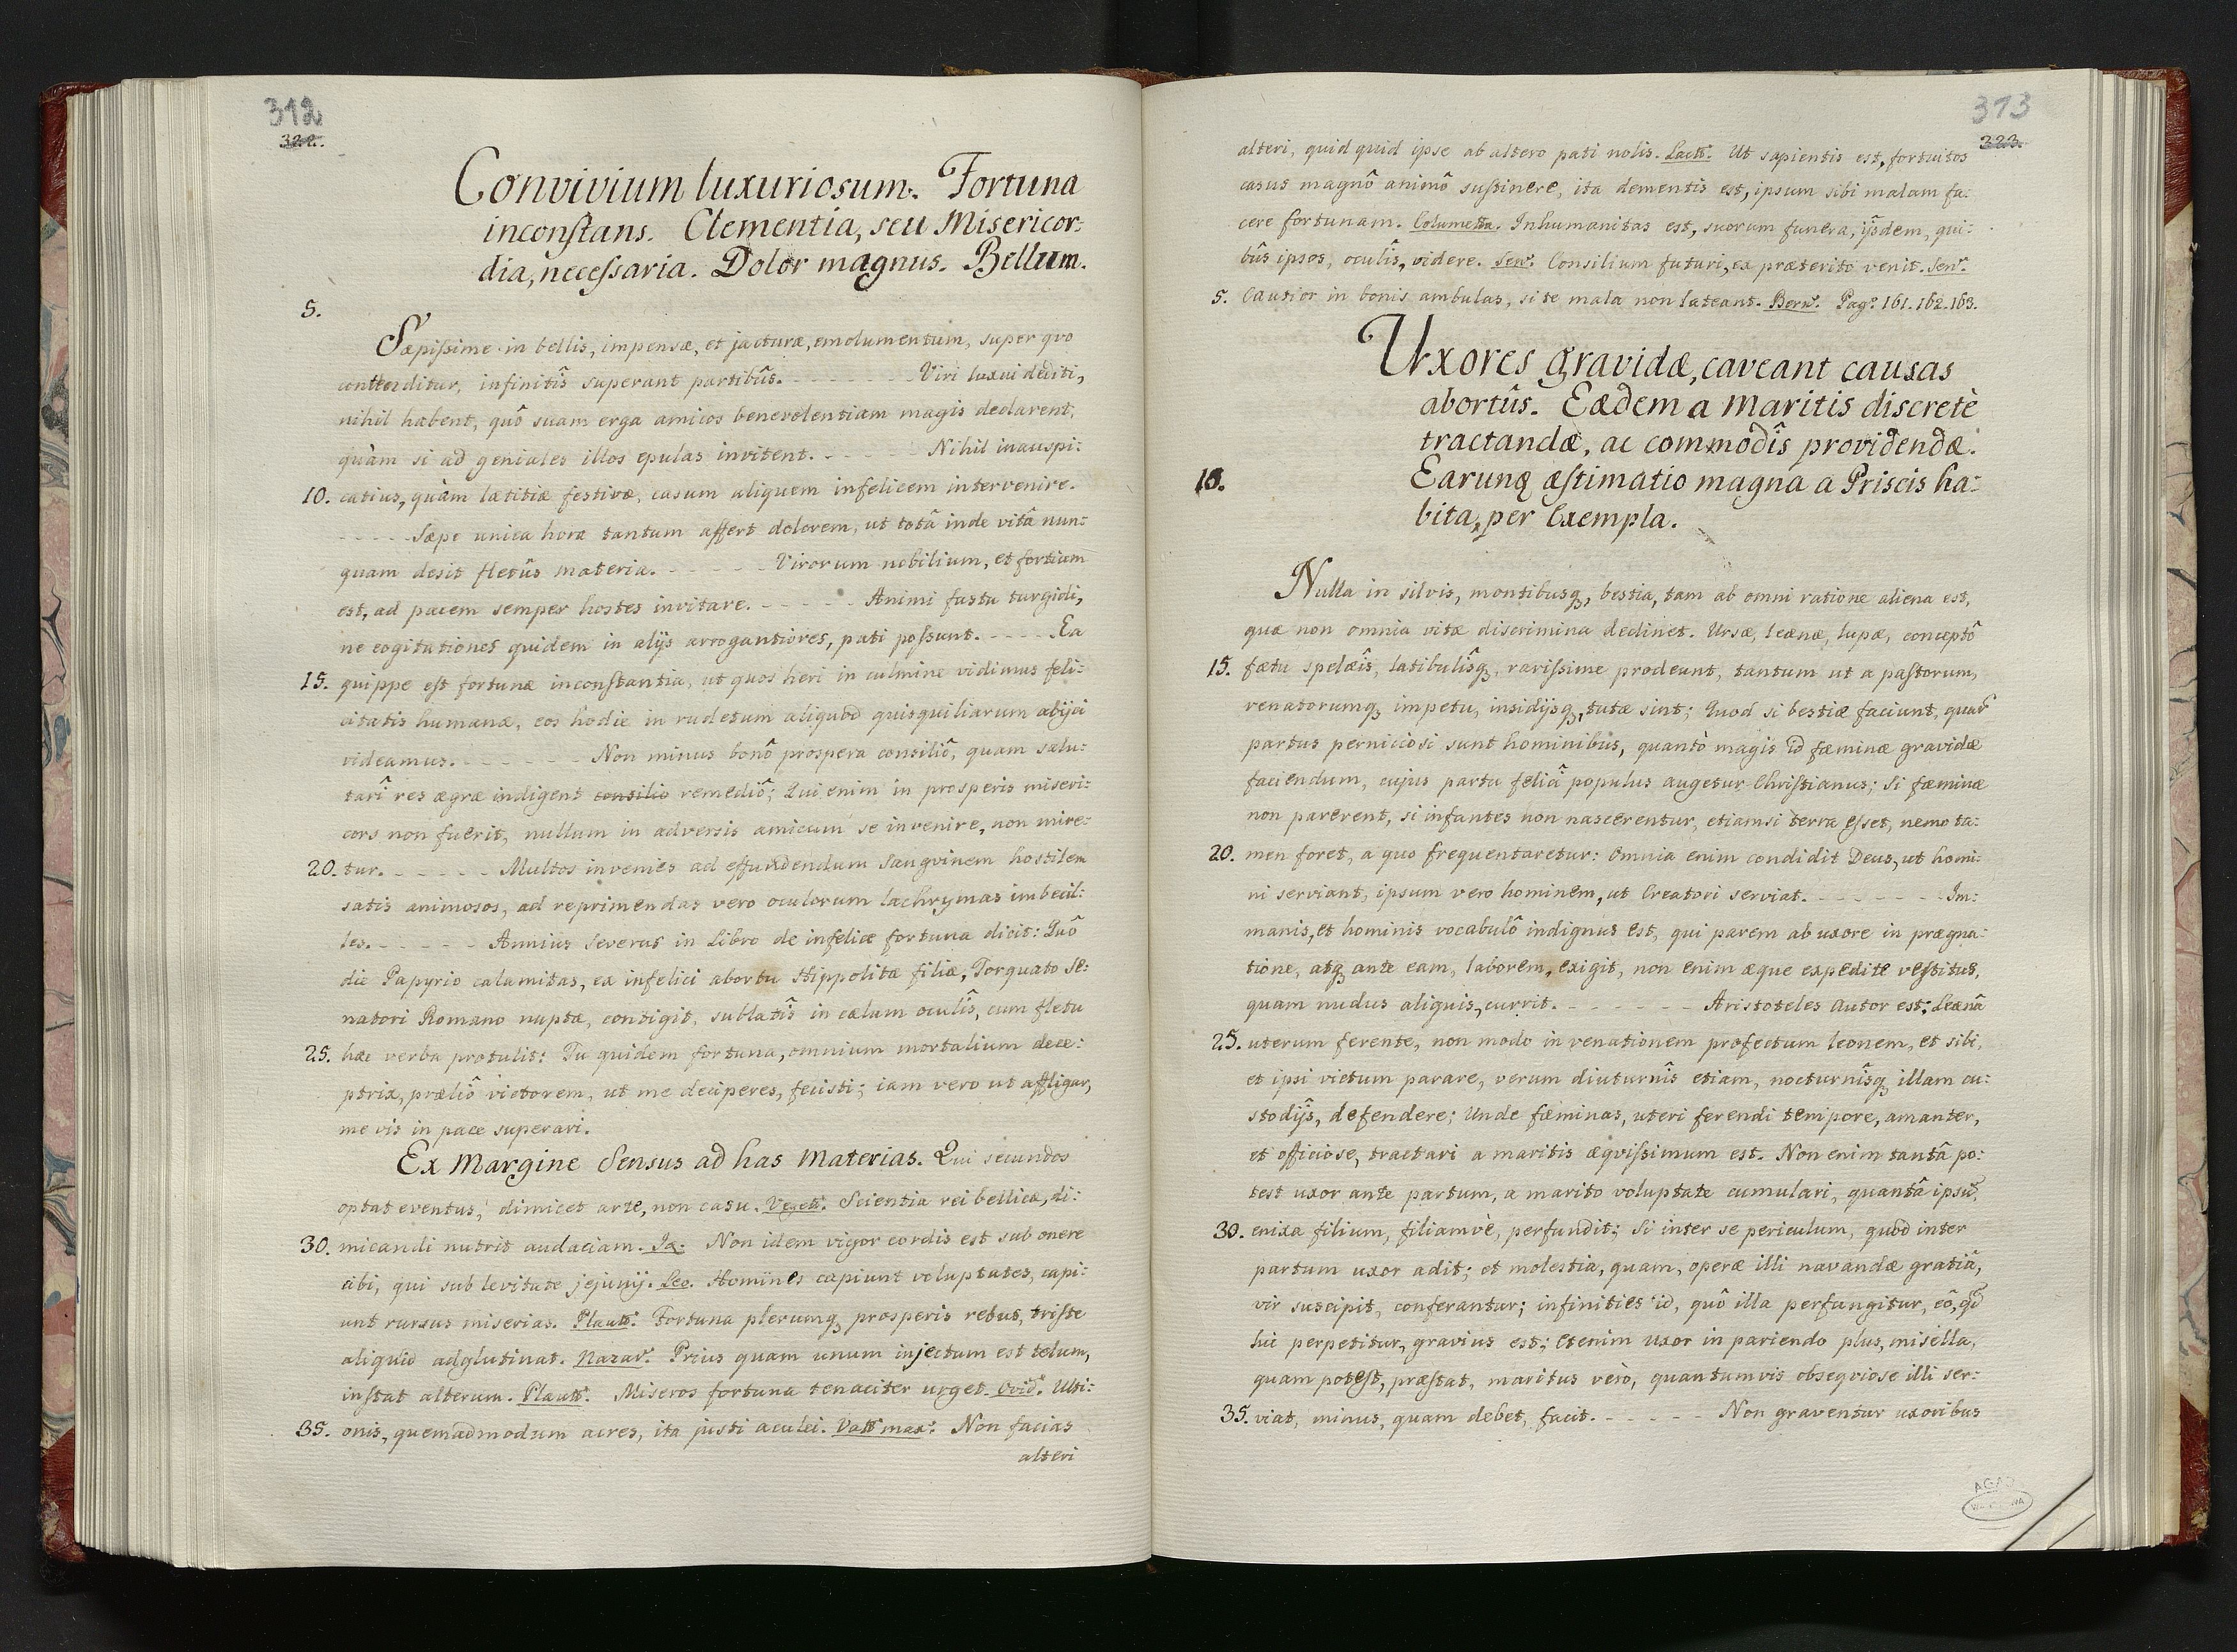 312
322.
Convivium luxuriosum. Fortuna
inconstans. Clementia, seu Misericor:
dia, necessaria. Dolor magnus. Bellum.
5.
Sæpissime in bellis, impensæ, et jacturæ, emolumentum, super qvo
contenditur, infinitîs superant partibûs. - - - - - - - Viri luxui dediti,
nihil habent, quô suam erga amicos benevolentiam magis declarent,
quàm si ad geniales illos epulas invitent. - - - - - Nihil inauspi:
10. catius, quàm lætitiæ festivæ, casum aliquem infelicem intervenire.
- - - - - Sæpe unica hora tantum affert dolorem, ut totâ inde vitâ nun:
quam desit fletûs materia. - - - - - - Virorum nobilium, et fortium
est, ad pacem semper hostes invitare. - - - - - Animi fastu turgidi,
ne cogitationes quidem in alijs arrogantiores, pati possunt. - - - - Ea
15. quippe est fortunæ inconstantia, ut quos heri in culmine vidimus feli:
citatis humanæ, eos hodie in rudetum aliquod quisquiliarum abijci
videamus. - - - - - - - Non minus bonô prospera consiliô, quam salu:
tarî res ægræ indigent consilio remediô; Qui enim in prosperis miseri:
cors non fuerit, nullum in adversis amicum se invenire, non mire:
20. tur. - - - - - - Multos invenies ad effundendum sangvinem hostilem
satis animosos, ad reprimendas vero oculorum lachrymas imbecil:
les. - - - - - - Annius Severus in Libro de infelice fortuna dicit: Quô
die Papyrio calamitas, ex infelici abortu Hippolitæ filiæ, Torquato Se:
natori Romano nuptæ, contigit, sublatîs in cælum oculîs, cum fletu
25. hæc verba protulit: Tu quidem fortuna, omnium mortalium dece:
ptrix, præliô victorem, ut me deciperes, fecisti; iam vero ut affligar,
me vis in pace superari.
Ex Margine Sensus ad has Materias. Qui secundos
optat eventus, dimicet arte, non casu. Veget: Scientia rei bellicæ, di:
30. micandi nutrit audaciam. Id: Non idem vigor cordis est sub onere
cibi, qui sub levitate jejunij. Leo. Homines capiunt voluptates, capi:
unt rursus miserias. Plaut: Fortuna plerumq prosperis rebus, triste
aliquid adglutinat. Nazar: Prius quam unum injectum est telum,
instat alterum. Plaut: Miseros fortuna tenaciter urget. Ovid: Ulti:
35. onis, quemadmodum acres, ita justi aculei. Val: max: Non facias
alteri
313
323.
alteri, quid quid ipse ab altero pati nolis. Lact: Ut sapientis est, fortuitos
casus magnô animô sustinere, ita dementis est, ipsum sibi malam fa:
cere fortunam. Columella. Inhumanitas est, suorum funera, ijsdem, qui:
bûs ipsos, oculîs, videre. Sen: Consilium futuri, ex præterito venit. Sen:
5. Cautior in bonis ambulas, si te mala non lateant. Bern: Pag: 161. 162. 163.
Uxores gravidæ, caveant causas
abortûs. Eædem a Maritis discretè
tractandæ, ac commodîs providendæ.
10. Earunq æstimatio magna a Priscis ha:
bita, per Exempla.
Nulla in silvis, montibusq, bestia, tam ab omni ratione aliena est,
quæ non omnia vitæ discrimina declinet. Ursæ, leænæ, lupæ, conceptô
15. fætu spelæîs, latibulîsq, rarissime prodeunt, tantum ut a pastorum,
venatorumq impetu, insidijsq, tutæ sint; Quod si bestiæ faciunt, quar
partus perniciosi sunt hominibus, quantò magis id fæminæ gravidæ
faciendum, cujus partu felicî populus augetur Christianus; Si fæminæ
non parerent, si infantes non nascerentur, etiamsi terra esset, nemo ta:
20. men foret, a quo frequentaretur: Omnia enim condidit Deus, ut homi:
ni serviant, ipsum vero hominem, ut Creatori serviat. - - - - - - - Im:
manis, et hominis vocabulô indignus est, qui parem ab uxore in prægna:
tione, atq ante eam, laborem, exigit, non enim æque expedite vestitus,
quam nudus aliquis, currit. - - - - - - - Aristoteles Autor est; Leænâ
25. uterum ferente, non modo in venationem profectum leonem, et sibi,
et ipsi victum parare, verum diuturnîs etiam, nocturnîsq illam cu:
stodijs, defendere; Unde fæminas, uteri ferendi tempore, amanter,
et officiose, tractari a maritis æqvissimum est. Non enim tantâ po:
test uxor ante partum, a marito voluptate cumulari, quantâ ipsu,
30. enixa filium, filiamvè, perfundit; Si inter se periculum, quod inter
partum uxor adit; et molestia, quam, operæ illi navandæ gratiâ,
vir suscipit, conferantur; infinities id, quô illa perfungitur, eô, qd
hic perpetitur, gravius est; Etenim uxor in pariendo plus, misella,
quam potest, præstat, maritus verò, quantumvis obseqviose illi ser:
35. viat, minus, quam debet, facit. - - - - - Non graventur uxoribus
AGAD